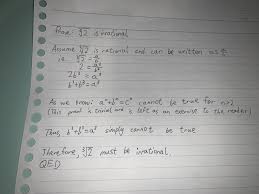 Prove: ∛2 is irrational
Assume ∛2 is rational and can be written as a/b
i.e. ∛2 = a/b
2 = a³/b³
2b³ = a³
b³+b³=a³
As we know: aⁿ+bⁿ=cⁿ cannot be true for n>2
(This proof is trivial and is left as an exercise to the reader)
Thus, b³+b³=a³ simply cannot be true
Therefore, ∛2 must be irrational.
QED